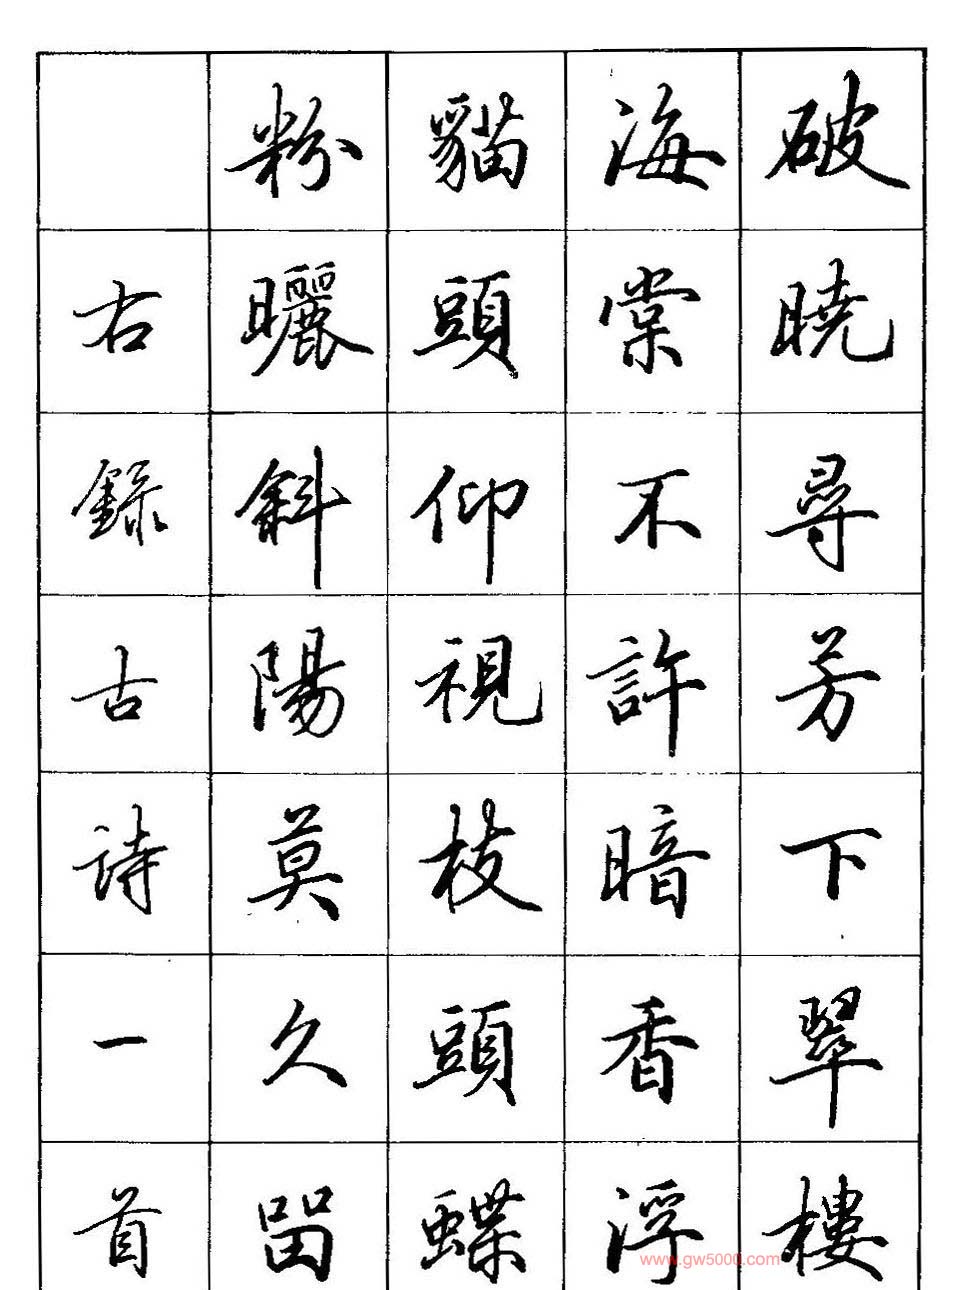 破曉尋芳下翠樓
海棠不許暗香浮
貓頭仰視枝頭蝶
粉曬斜陽莫久留
右錄古詩一首
www.gw5000.com